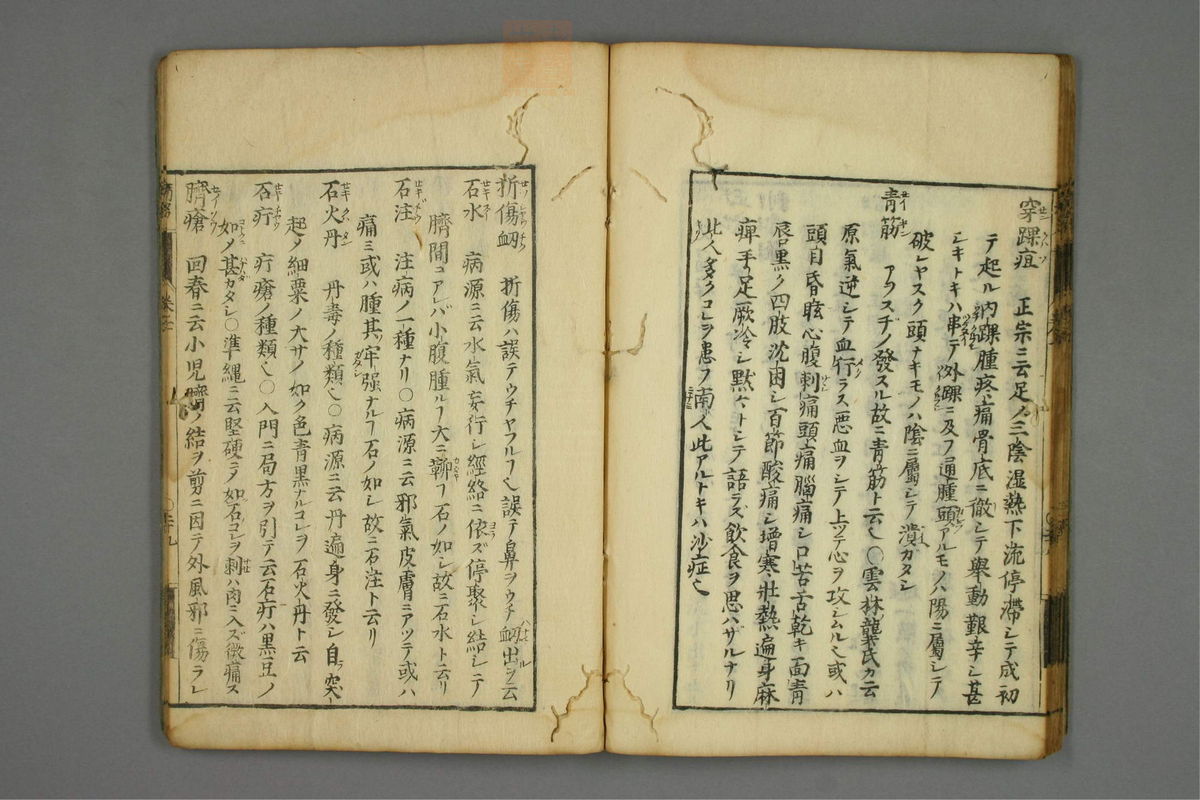 穿踝疽 正宗ニ云足ノ三陰湿熱下流停滞シテ成初
テ起ル内踝腫疼痛骨底ニ徹シテ舉動艱辛シ甚
シキトキハ串テ外踝ニ及フ通腫頭アルモノハ陽ニ屬シテ
破レヤスク頭ナキモノハ陰ニ屬シテ潰ガタシ
青筋 アヲスヂノ發スル故ニ青筋ト云也〇雲林龔氏カ云
原氣逆シテ血行ラス悪血ヲシテ上ツテ心ヲ攻シムル也或ハ
頭目昏眩心腹刺痛頭痛腦痛シ口苦舌乾キ面青
唇黒ク四肢沈困シ百節酸痛シ増寒壮熱遍身麻
痺手足厥冷シ黙々トシテ語ラズ飲食ヲ思ハザルナリ
此人多クコレヲ患フ南人此アルトキハ沙症也
折傷衂 折傷ハ誤テウチヤフル也誤テ鼻ヲウチ衂出ヲ云
石水 病源ニ云水氣妄行シ經絡ニ依ズ停聚シ結シテ
臍間ニアレバ小腹腫ルヿ大ニ鞕ヿ石ノ如シ故ニ石水ト云リ
石注 注病ノ一種ナリ〇病源ニ云邪氣皮膚ニアツテ或ハ
痛ミ或ハ腫其牢强ナルヿ石ノ如シ故ニ石注ト云リ
石火丹 丹毒ノ種類也〇病源ニ云丹遍身ニ發シ自突
起ノ細粟ノ大サノ如ク色青黒ナルコレヲ石火丹ト云
石疔 疔瘡ノ種類也〇入門ニ局方ヲ引テ云石疔ハ黒豆ノ
如ノ甚カタシ〇準縄ニ云堅硬ニノ如石コレヲ刺ハ肉ニ入ズ微痛ス
臍瘡 回春ニ云小児臍ノ結ヲ剪ニ因テ外風邪ニ傷ラレ